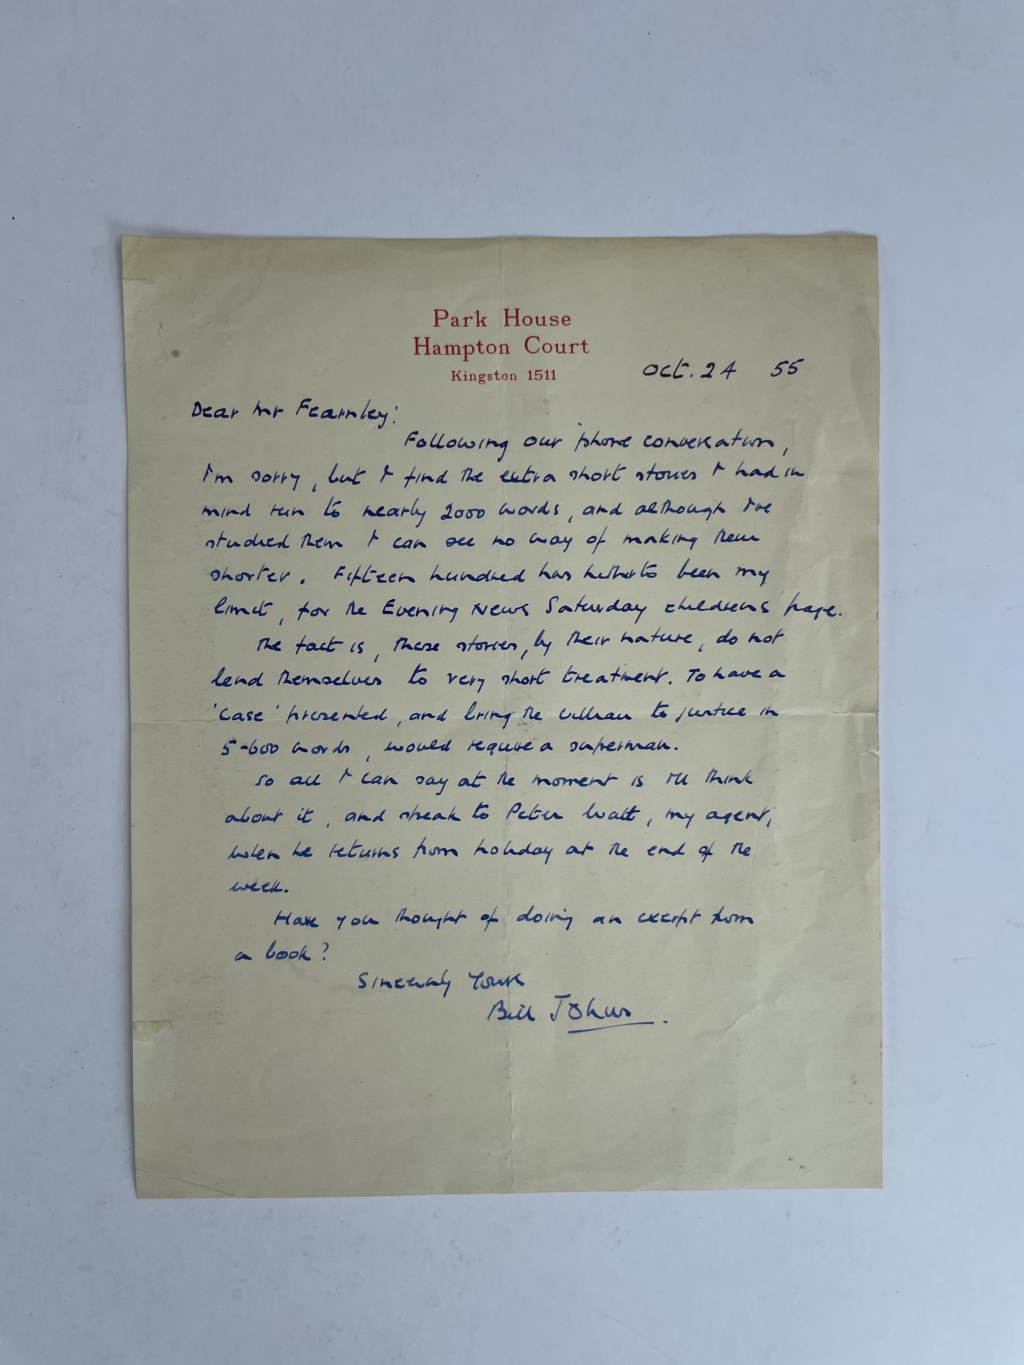 Park House
Hampton Court
Kingston 1511
Oct. 24 55
Dear Mr Fearnley:
Following our 'phone conversation,
I'm sorry, but I find the extra short stories I had in
mind run to nearly 2000 words, and although I've
studied them I can see no way of making them
shorter. Fifteen hundred has hitherto been my
limit, for the Evening News Saturday childrens page.
The fact is, these stories, by their nature, do not
lend themselves to very short treatment. To have a
'case' presented, and bring the villian to justice in
5-600 words, would require a superman.
So all I can say at the moment is I'll think
about it, and speak to Peter Watt, my agent,
when he returns from holiday at the end of the
week.
Have you thought of doing an exerpt from
a book?
Sincerely Yours
Bill Johns.